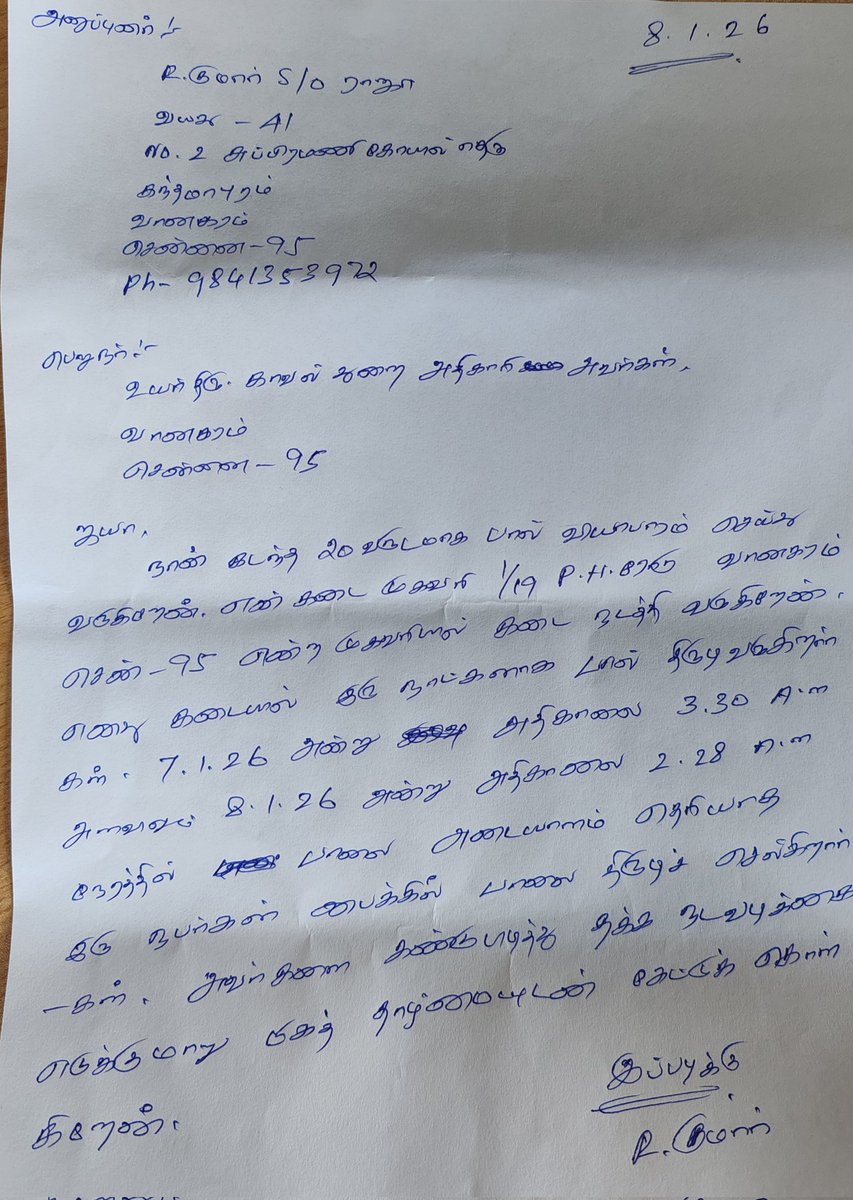 அனுப்புனர் :-
8.1.26
R. குமார் S/O ராஜா
வயது - 41
No. 2 சுப்பிரமணி கோயில் தெரு
கந்தமாபுரம்
வானகரம்
சென்னை - 95
Ph - 9841353972
பெறுநர் :-
உயர்திரு. காவல் துறை அதிகாரி அவர்கள்.
வானகரம்
சென்னை - 95
ஐயா,
நான் கடந்த 20 வருடமாக பால் வியாபாரம் செய்து
வருகிறேன். என் கடை முகவரி 1/19 P.H. ரோடு வானகரம்
சென் - 95 என்ற முகவரியில் கடை நடத்தி வருகிறேன்.
எனது கடையில் இரு நாட்களாக பால் திருடி வருகிறார்
கள். 7.1.26 அன்று அதிகாலை 3.30 A.m
அளவும் 8.1.26 அன்று அதிகாலை 2.28 A.m
நேரத்தில் பாலை அடையாளம் தெரியாத
இரு நபர்கள் பைக்கில் பாலை திருடிச் செல்கிறார்
-கள். அவர்களை கண்டுபிடித்து தக்க நடவடிக்கை
எடுக்குமாறு மிகத் தாழ்மையுடன் கேட்டுக் கொள்
கிறேன்.
இப்படிக்கு
R. குமார்